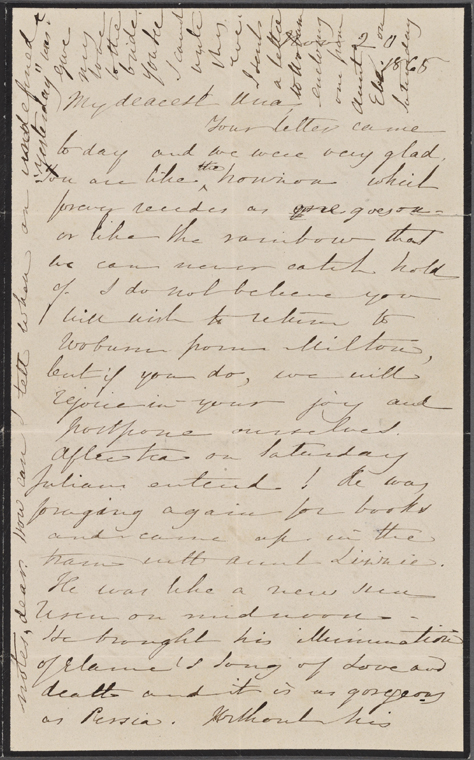 My dearest Una,
Your letter came
to day and we were very glad.
You are like the horizon which
forever recedes as one goes on -
or like the rainbow that
we can never catch hold
of. I do not believe you
will wish to return to
Woburn from Milton,
but if you do, we will
rejoice in your joy and
postpone ourselves.
After tea on Saturday
Julian entered! He was
foraging again for books
and came up in the
train with aunt Lizzie.
He was like a new sun
risen on midnoon -
He brought his illumination
of Elaine's Song of Love and
death and it is as gorgeous
as Persia. Without his
notes, dear. How can I tell when an undefined
"yesterday" was?
give
my
love
to the
bride.
You see
I can't
write
this
eve.
I sent
a letter
to Woburn
enclosing
one from
Aunt
on
Saturday
20
1865